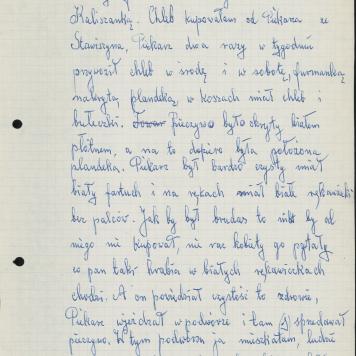 Kaliszanką. Chleb kupowałam od Piekarza ze
Stawiszyna, Piekarz dwa razy w tygodniu
przywoził chleb w środę i w sobotę, furmanką
nakrytą plandeką, w koszach miał chleb i
bułeczki. Towar Pieczywo było okryty białem
płótnem, a na to dopiero była położona
plandeka. Piekarz był bardzo czysty miał
biały fartuch i na rękach miał białe rękawiczki
bez palców. Jak by był brudas to nikt by od
niego nie kupował, nie raz kobiety go pytały
co pan taki hrabia w białych rękawiczkach
chodzi. A on powiedział czystość to zdrowie,
Piekarz wjeżdżał w podwórze i tam sprzedawał
pieczywo. W tym podwórzu ja mieszkałam, ludzie